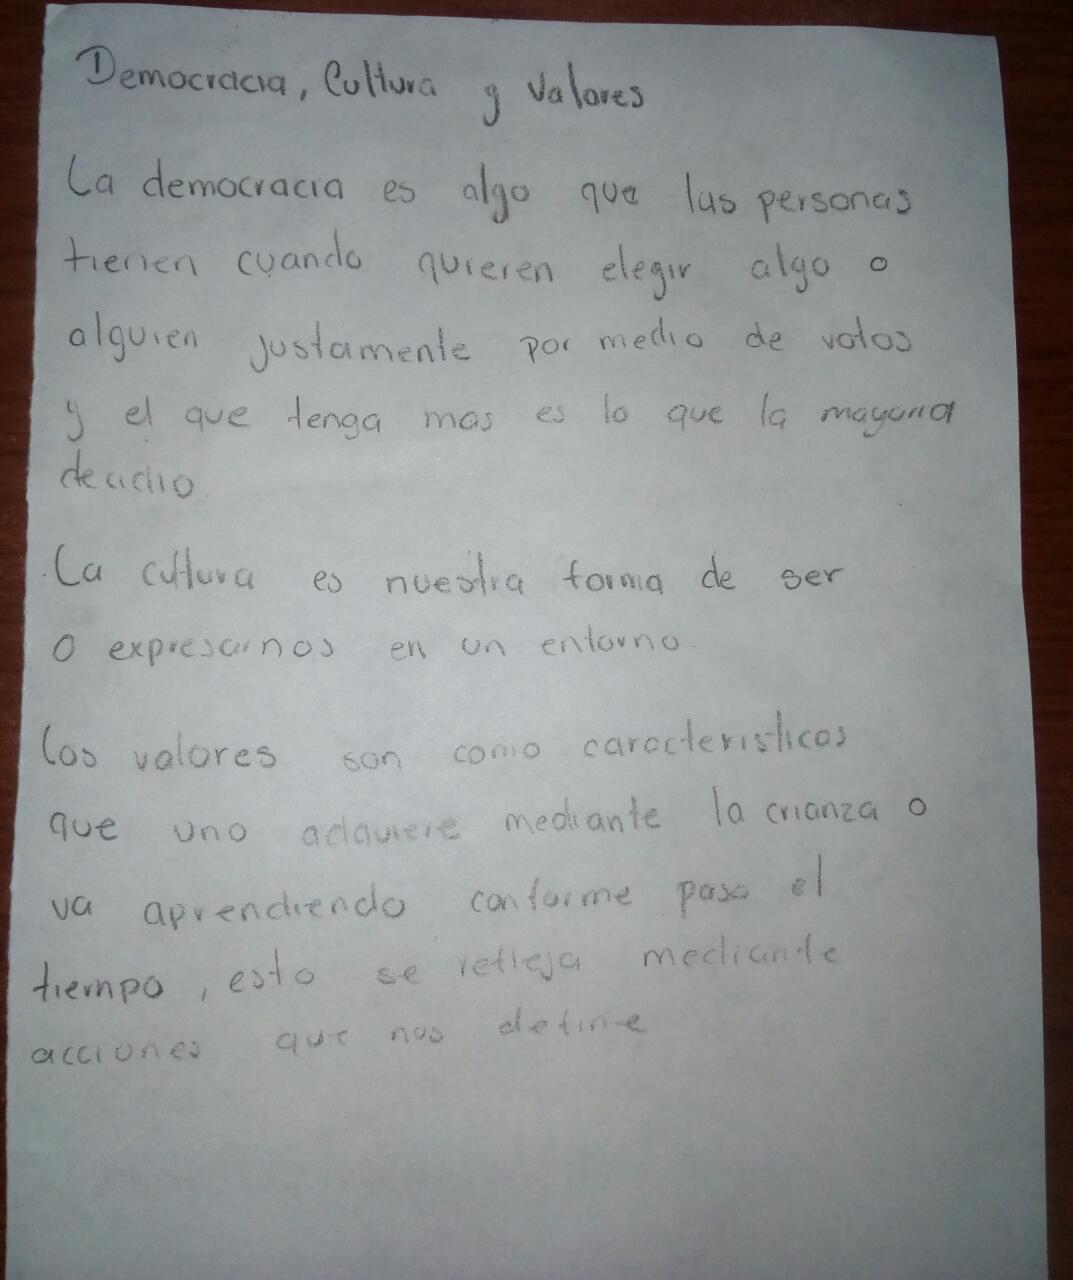 Democracia, Cultura y Valores
La democracia es algo que las personas
tienen cuando quieren elegir algo o
alguien justamente por medio de votos
y el que tenga mas es lo que la mayoria
decidio.
La cultura es nuestra forma de ser
o expresarnos en un entorno.
Los valores son como caracteristicas
que uno adquiere mediante la crianza o
va aprendiendo conforme pasa el
tiempo, esto se refleja mediante
acciones que nos define